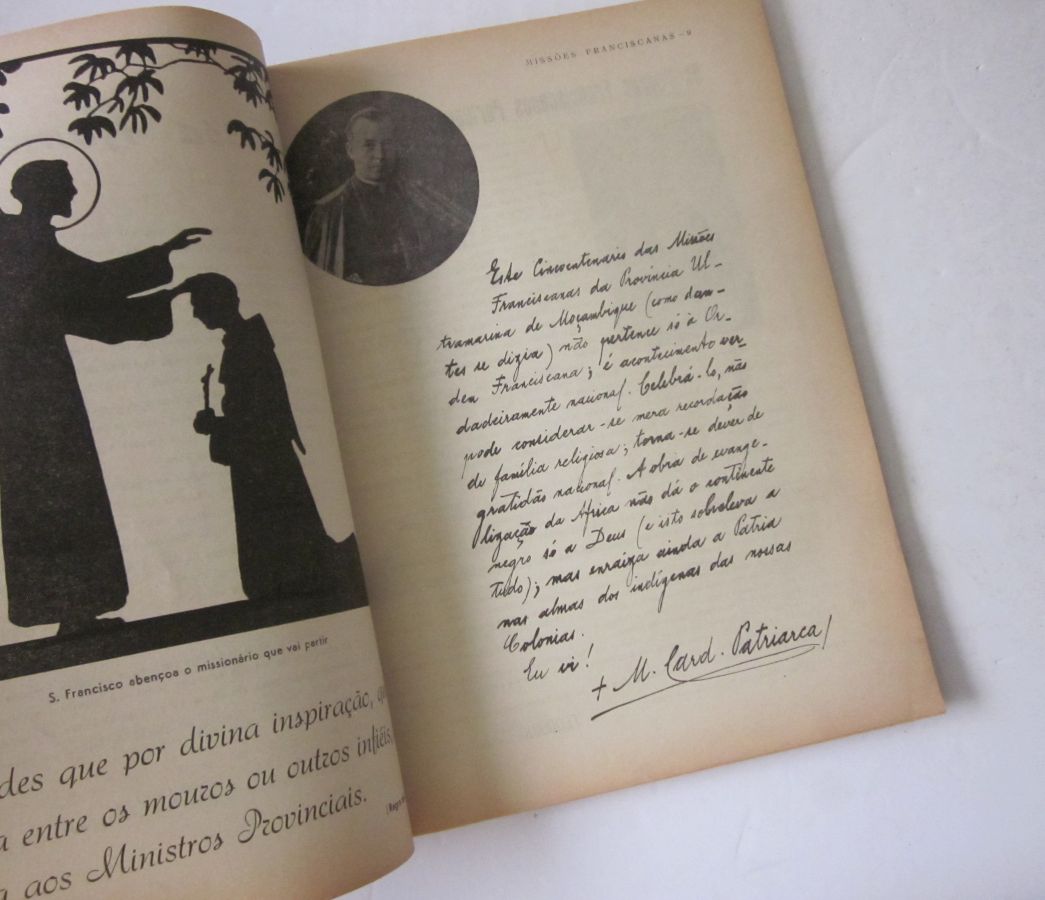 S. Francisco abençoa o missionário que vai partir
des que por divina inspiração,
entre os mouros ou outros infiéis,
aos Ministros Provinciais.
MISSÕES FRANCISCANAS—9
Este Cincoentenario das Missões
Franciscanas da Província Ul-
tramarina de Moçambique (como dan-
tes se dizia) não pertence só à Or-
dem Franciscana; é acontecimento ver-
dadeiramente nacional. Celebrá-lo, não
pode considerar-se mera recordação
de família religiosa; torna-se dever de
gratidão nacional. A obra de evange-
lização da Africa não dá o continente
negro só a Deus (e isto sobreleva a
tudo); mas enraiza ainda a Patria
nas almas dos indígenas das nossas
Colonias.
Eu vi!
+ M. Card. Patriarca